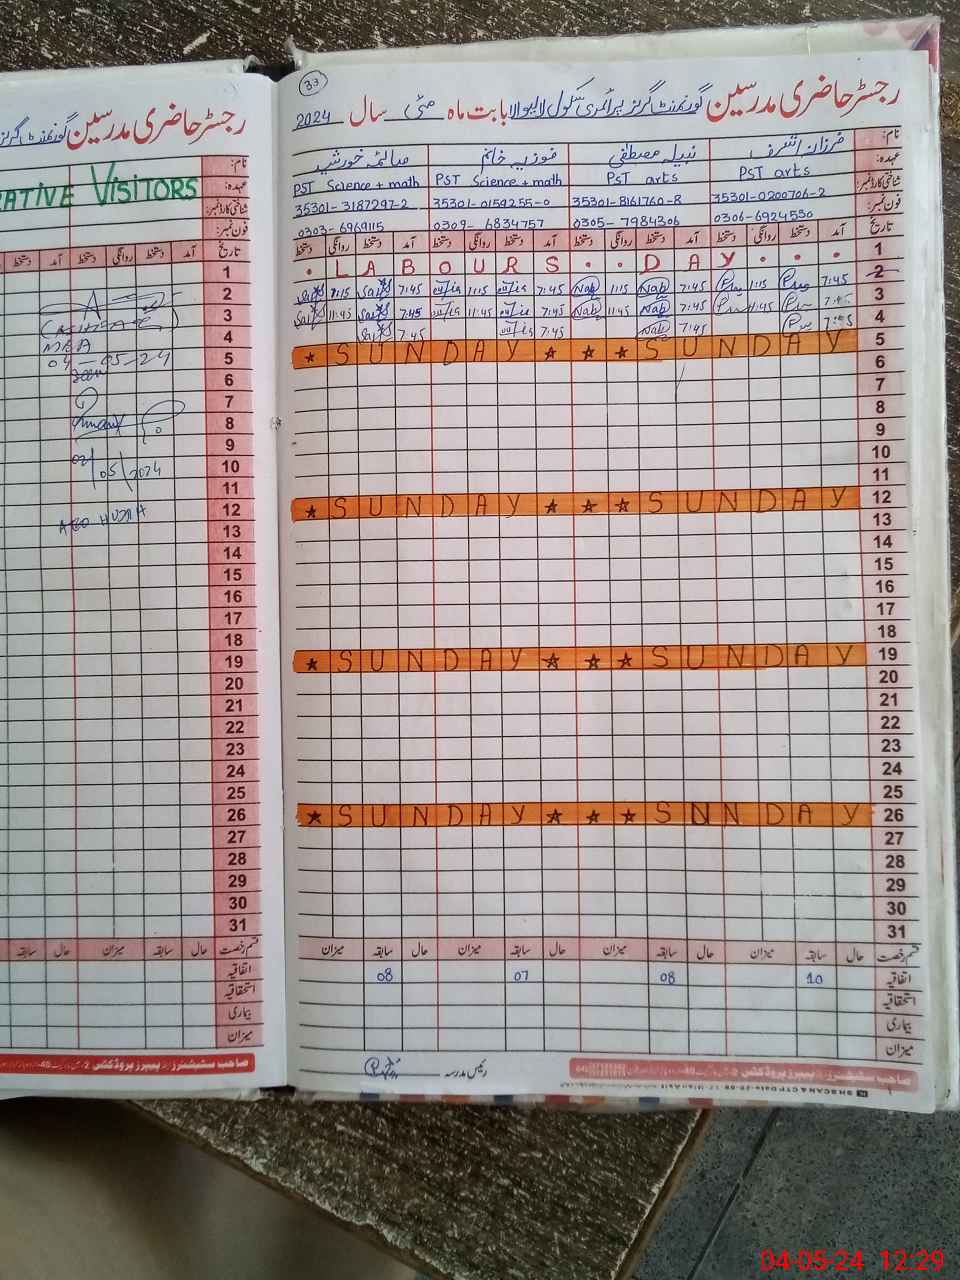 رجسٹر حاضری مدرسین
ATIVE VISITORS
نام:
عہدہ:
شناختی کارڈ نمبر:
فون نمبر:
تاریخ آمد دستخط روانگی دستخط آمد دستخط
1
2
3
4
5
6
7
8
9
10
11
12
13
14
15
16
17
18
19
20
21
22
23
24
25
26
27
28
29
30
31
MEA
04-05-24
Seen
02/05/2024
AEO HUJRA
قسم رخصت حال سابقہ میزان حال سابقہ
اتفاقیہ
استحقاقیہ
بیماری
میزان
33
رجسٹر حاضری مدرسین گورنمنٹ گرلز پرائمری سکول لالیوالا بابت ماہ مئی سال 2024
نام: فرزانہ اشرف نبیلہ مصطفی فوزیہ خانم صائمہ خورشید
عہدہ: PST arts PST arts PST Science + math PST Science + math
شناختی کارڈ نمبر: 35301-0200706-2 35301-8161760-8 35301-0159255-0 35301-3187297-2
فون نمبر: 0306-6924530 0305-7984306 0309-6834757 0303-6969115
تاریخ آمد دستخط روانگی دستخط آمد دستخط روانگی دستخط آمد دستخط روانگی دستخط آمد دستخط روانگی دستخط
• LABOURS • • DAY • • • 1
1:15 7:45 1:15 7:45 Nab 1:15 Nab 7:45 1:15 7:45 2
11:45 7:45 11:45 7:45 Nab 11:45 Nab 7:45 11:45 7:45 3
7:45 7:45 Nab 7:45 7:45 4
★ SUNDAY ★ ★ ★ SUNDAY 5
6
7
8
9
10
11
★ SUNDAY ★ ★ ★ SUNDAY 12
13
14
15
16
17
18
★ SUNDAY ★ ★ ★ SUNDAY 19
20
21
22
23
24
25
★ SUNDAY ★ ★ ★ SUNNDAY 26
27
28
29
30
31
قسم رخصت حال سابقہ میزان حال سابقہ میزان حال سابقہ میزان حال سابقہ میزان
اتفاقیہ 10 08 07 08
استحقاقیہ
بیماری
میزان
رئیس مدرسہ
صاحب سٹیشنرز اینڈ پیپرز پروڈکشن
صاحب سٹیشنرز اینڈ پیپرز پروڈکشن
04-05-24 12:29